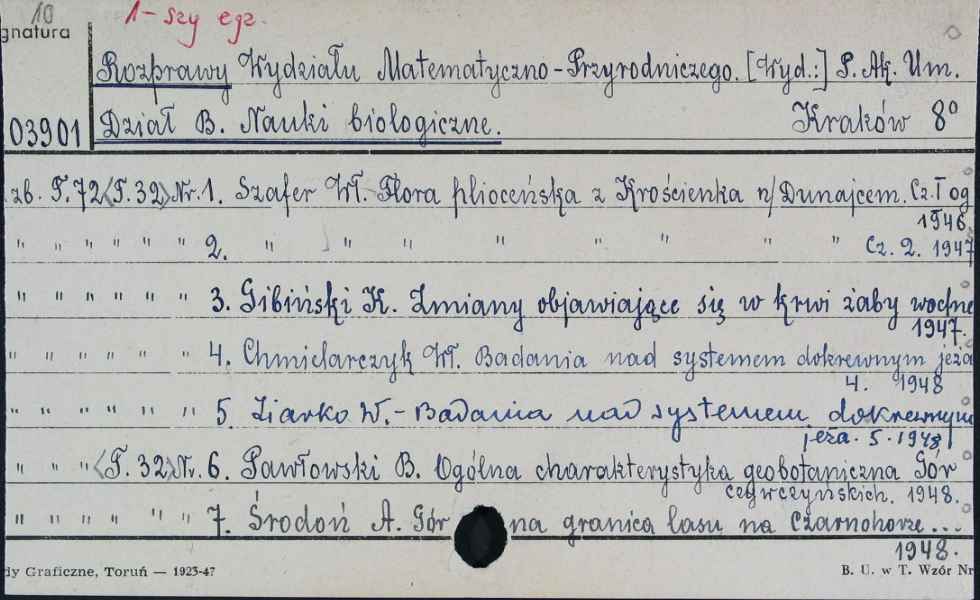 10 1-szy egz.
gnatura
Rozprawy Wydziału Matematyczno-Przyrodniczego. [Wyd.:] P. Ak. Um.
03901 Dział B. Nauki biologiczne. Kraków 8º
zb. T.72 <T.32> Nr. 1. Szafer Wł. Flora plioceńska z Krościenka n/Dunajcem. Cz. I og
1946.
" " " " " " 2. " " " " " " " " Cz. 2. 1947
" " " " " 3. Gibiński K. Zmiany objawiające się w krwi żaby wodne
1947.
" " " " " 4. Chmielarczyk Wł. Badania nad systemem dokrewnym jeża
4. 1948
" " " " " " 5 Ziarko W. - Badania nad systemem dokrewnym
jeża. 5. 1948
" " " <T. 32> Nr. 6. Pawłowski B. Ogólna charakterystyka geobotaniczna Gór
Czywczyńskich. 1948.
" " " " " " 7. Środoń A. Gór na granica lasu na Czarnohorze...
1948.
dy Graficzne, Toruń — 1923-47 B. U. w T. Wzór Nr